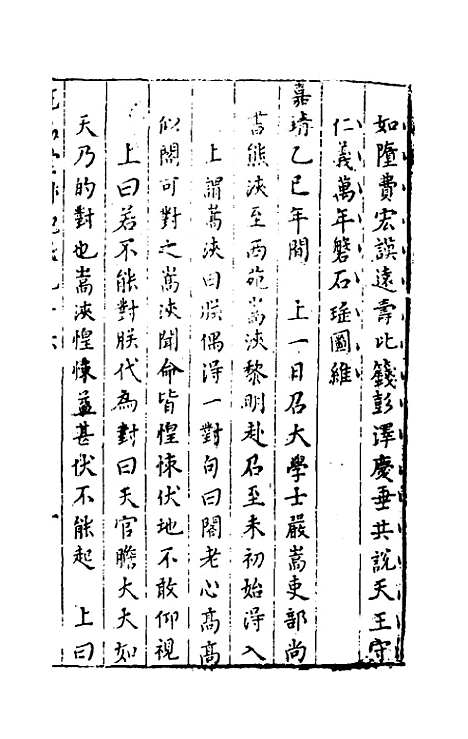 如隆費宏謨遠壽比籛彭澤慶垂共說天王守
仁義萬年磐石瑶圖維
嘉靖乙巳年間　上一日召大學士嚴嵩吏部尚
書熊浹至西苑嵩浹黎明赴召至未初始得入
上謂嵩浹曰朕偶得一對句曰閣老心高高
似閣可對之嵩浹聞命皆惶悚伏地不敢仰視
上曰若不能對朕代為對曰天官膽大大如
天乃的對也嵩浹惶悚益甚伏不能起　上曰